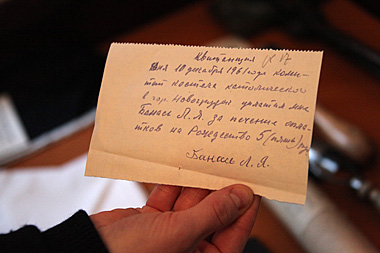 Квитанция
Дня 10 декабря 1961 года коми-
тет костела католического
в гор. Новогрудке уплатил мне
Банась Л.Я. за печение опла-
тков на Рождество 5 (пять) руб
Банась Л.Я.